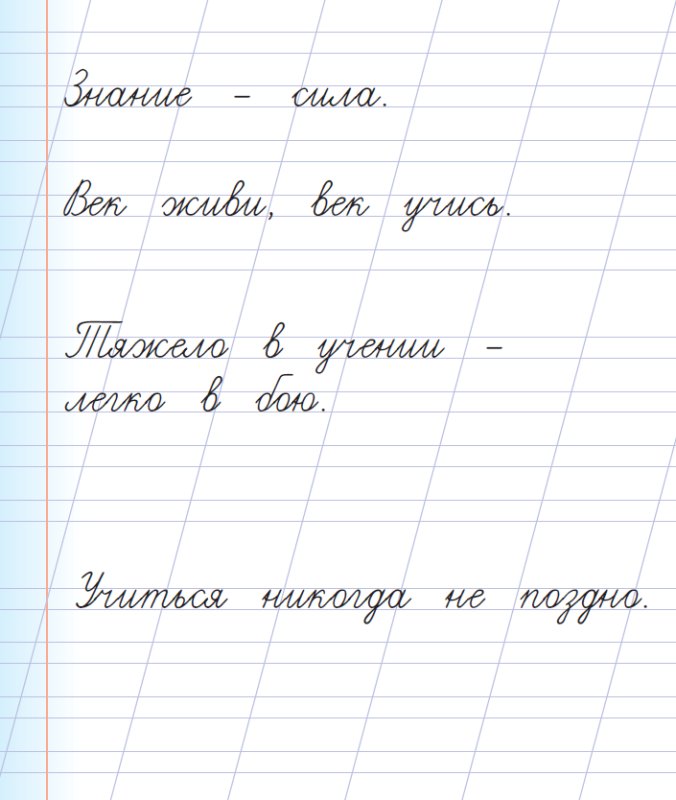 Знание - сила.
Век живи, век учись.
Тяжело в учении -
легко в бою.
Учиться никогда не поздно.